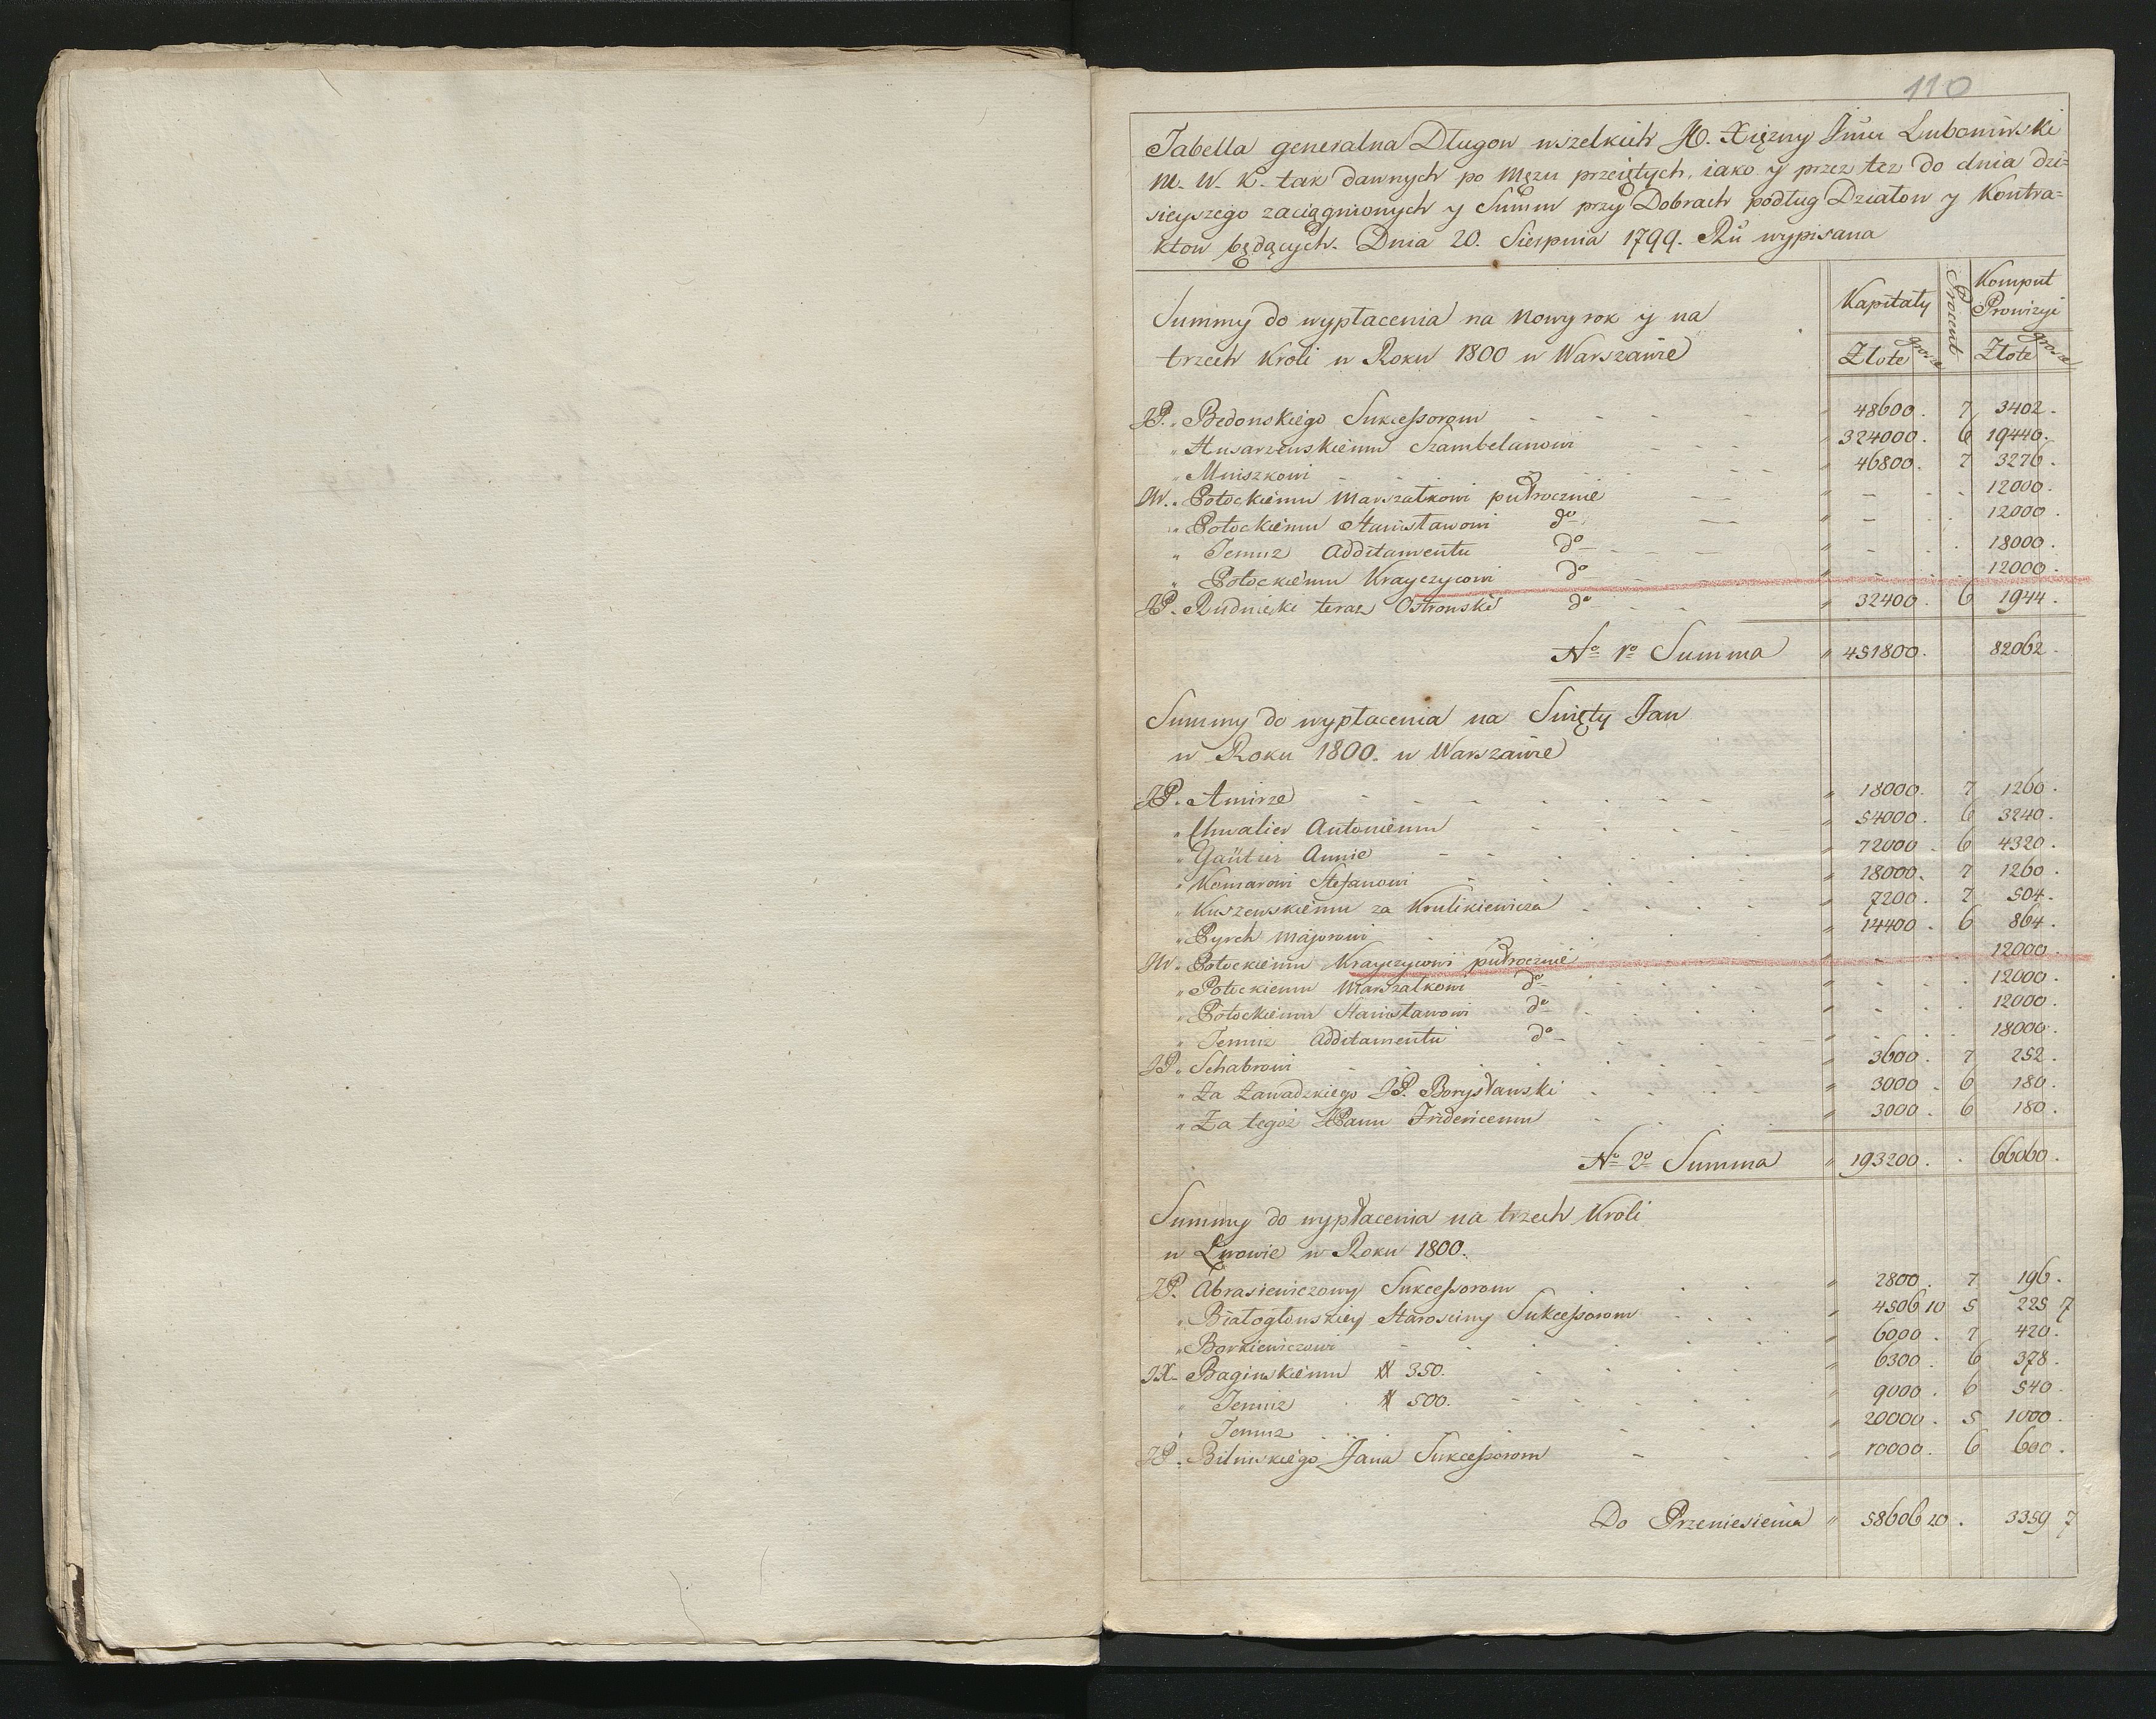 110
Tabella generalna Długow wszelkich JO. Xiężny Jmci Lubomirski
M. W. K. tak dawnych po Mężu przeiętych, iako y przez też do dnia dzi=
sieyszego zaciągnionych y Summ przy Dobrach podług Działow y Kontra=
ktow będących. Dnia 20. Sierpnia 1799. Rũ wypisana
Summy do wypłacenia na Nowy rok y na
trzech Kroli w Roku 1800 w Warszawie
Kapitały Procent Komput Prowizyi
Złote grosze Złote grosze
JP. Bedonskiego Sukcessorom 48600. 7 3402.
" Husarzewskiemu Szambelanowi 324000. 6 19440.
" Mniszkowi 46800. 7 3276.
JW. Potockiemu Marszałkowi pułrocznie 12000.
" Potockiemu Stanisławowi do 12000.
" Temuż Additamentu do 18000.
" Potockiemu Krayczycowi do 12000.
JP. Rudnicki teraz Ostrowski do 32400. 6 1944.
No 1o Summa 451800. 82062.
Summy do wypłacenia na Swięty Jan
w Roku 1800. w Warszawie
JP. Amirze 18000. 7 1260.
" Chwalier Antoniemu 54000. 6 3240.
" Gautier Annie 72000. 6 4320.
" Komarowi Stefanowi 18000. 7 1260.
" Kuszewskiemu za Krulikiewicza 7200. 7 504.
" Pyrch Majorowi 14400. 6 864.
JW. Potockiemu Krayczycowi pułrocznie 12000.
" Potockiemu Marszałkowi do 12000.
" Potockiemu Stanisławowi do 12000.
" Temuż Additamentu do 18000.
JP. Schabrowi 3600. 7 252.
" Za Zawadzkiego JP. Borysławski 3000. 6 180.
" Za tegoż JPanu Fridericemu 3000. 6 180.
No 2o Summa 193200. 66060.
Summy do wypłacenia na trzech Kroli
w Lwowie w Roku 1800.
JP. Abrasiewiczowy Sukcessorom 2800. 7 196.
" Białogłowskiey Starosciny Sukcessorom 4506 10 5 225 7
" Borkiewiczowi 6000. 7 420.
JX. Baginskiemu # 350. 6300. 6 378.
" Temuż # 500. 9000. 6 540.
" Temuż 20000. 5 1000.
JP. Bilinskiego Jana Sukcessorom 10000. 6 600.
Do Przeniesienia 58606 10. 3359 7